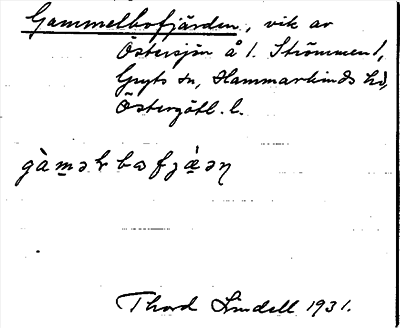 Gammelbofjärden, vik av
Östersjön å l. Strömmen l,
Gryts sn, Hammarkinds hd,
Östergötl. l.
Thord Lindell 1931.